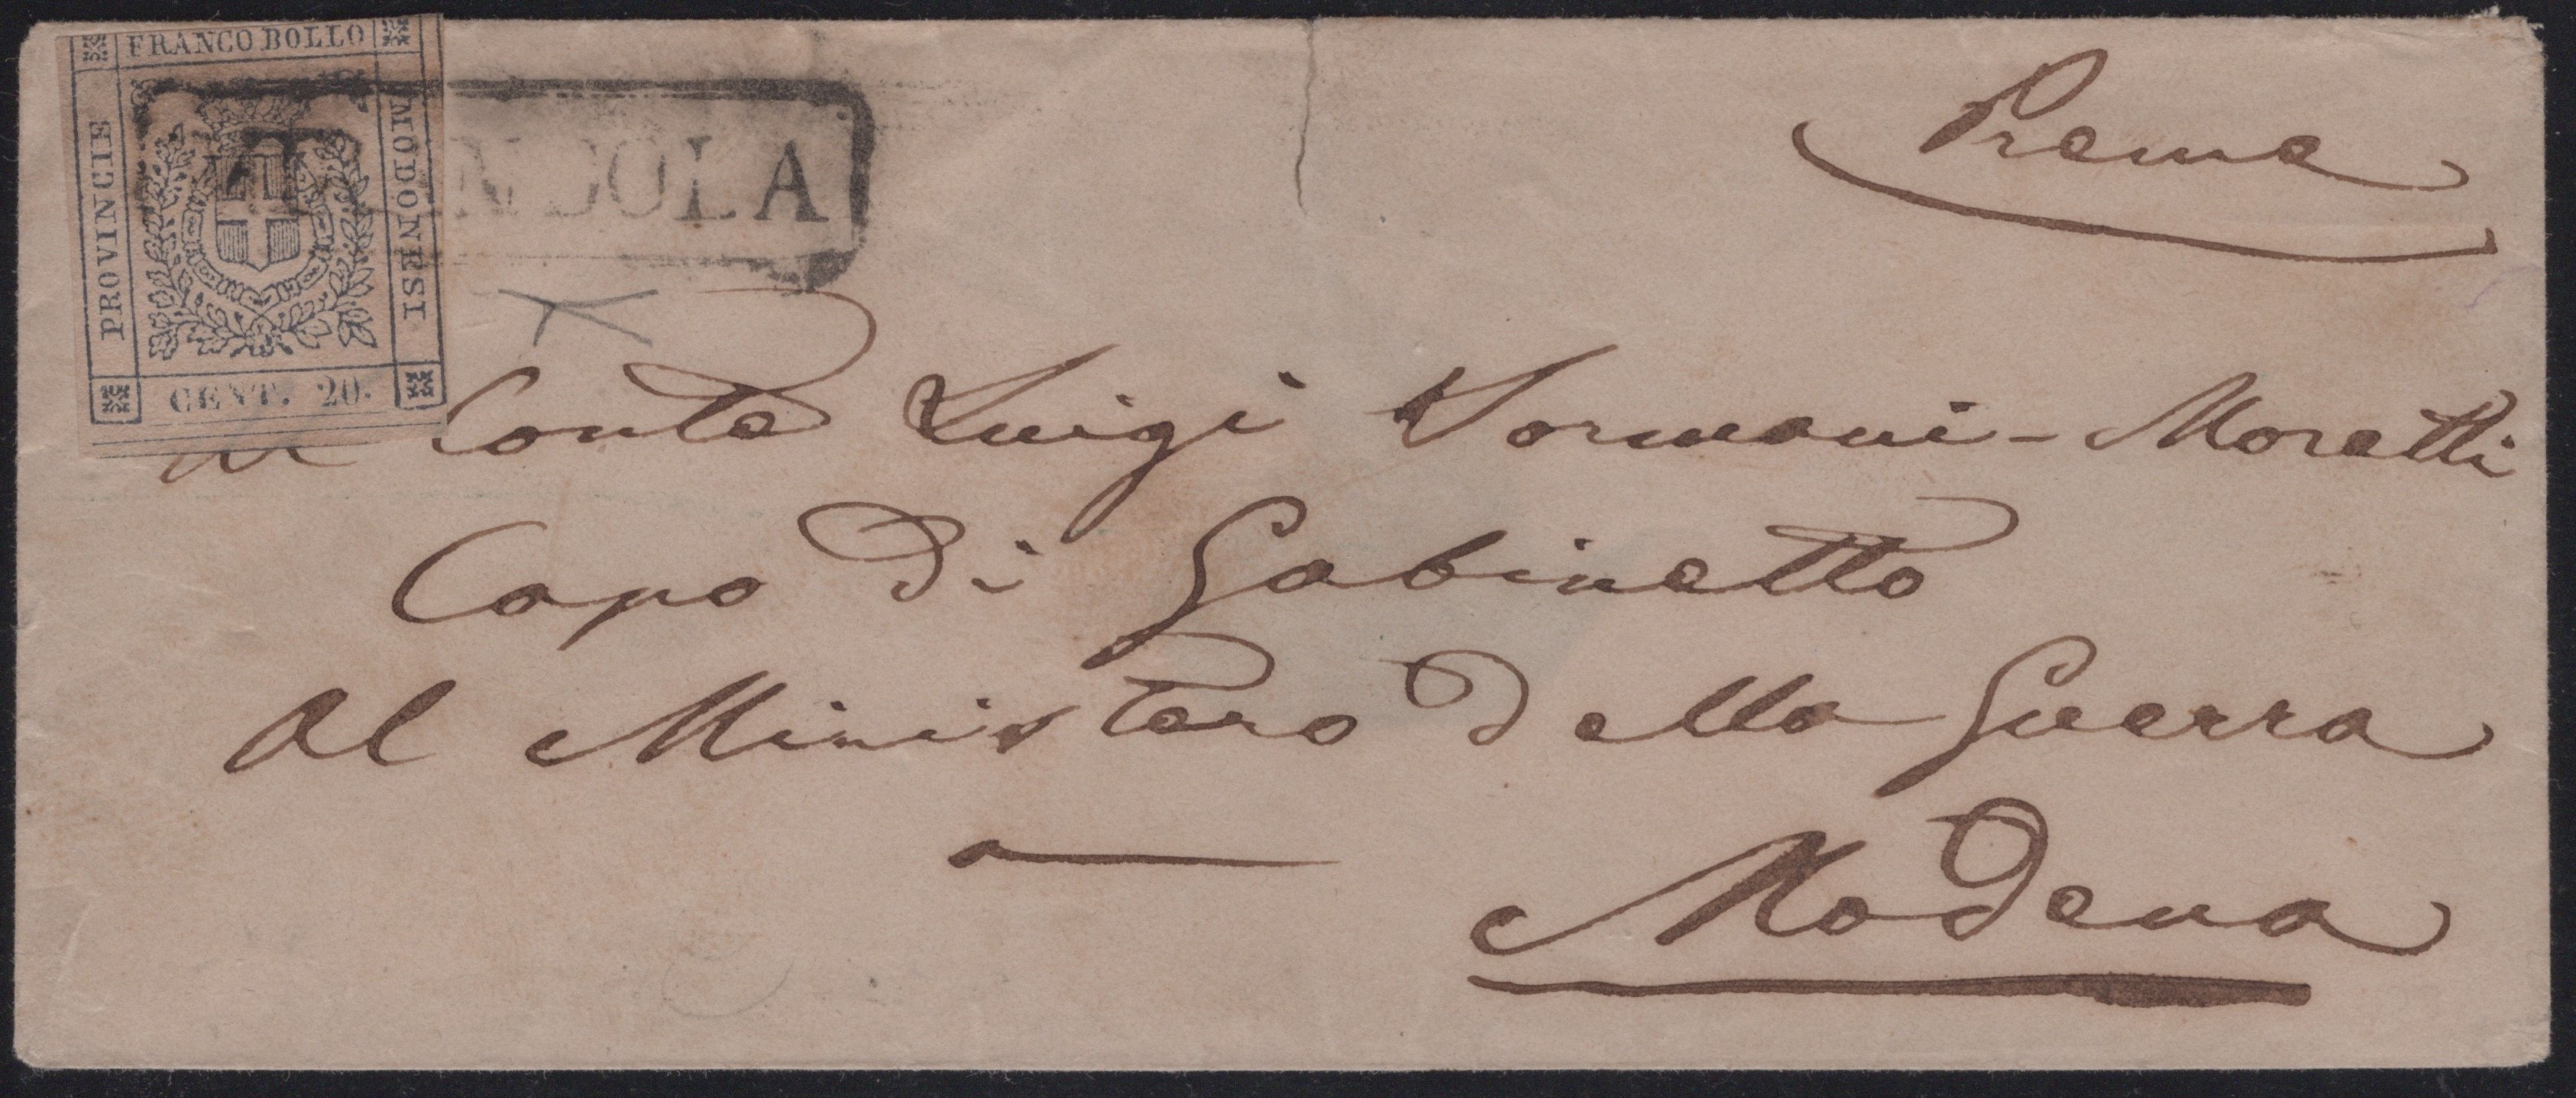 FRANCO BOLLO
PROVINCIE
MODONESI
CENT. 20.
Preme
Conte Luigi Sormani-Moretti
Capo di Gabinetto
Al Ministero della Guerra
Modena